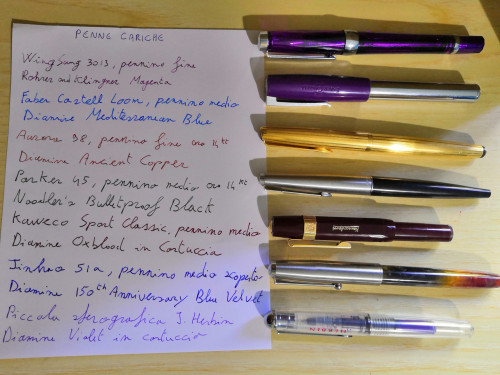 PENNE CARICHE
WingSung 3013, pennino fine
Rohrer und Klingner Magenta
Faber Castell Loom, pennino medio
Diamine Mediterranean Blue
Aurora 98, pennino fine oro 14 kt
Diamine Ancient Copper
Parker 45, pennino medio oro 14 kt
Noodler's Bulletproof Black
Kaweco Sport Classic, pennino medio
Diamine Oxblood in cartuccia
Jinhao 51a, pennino medio scoperto
Diamine 150th Anniversary Blue Velvet
Piccola sferografica J. Herbin
Diamine Violet in cartuccia
HERBIN